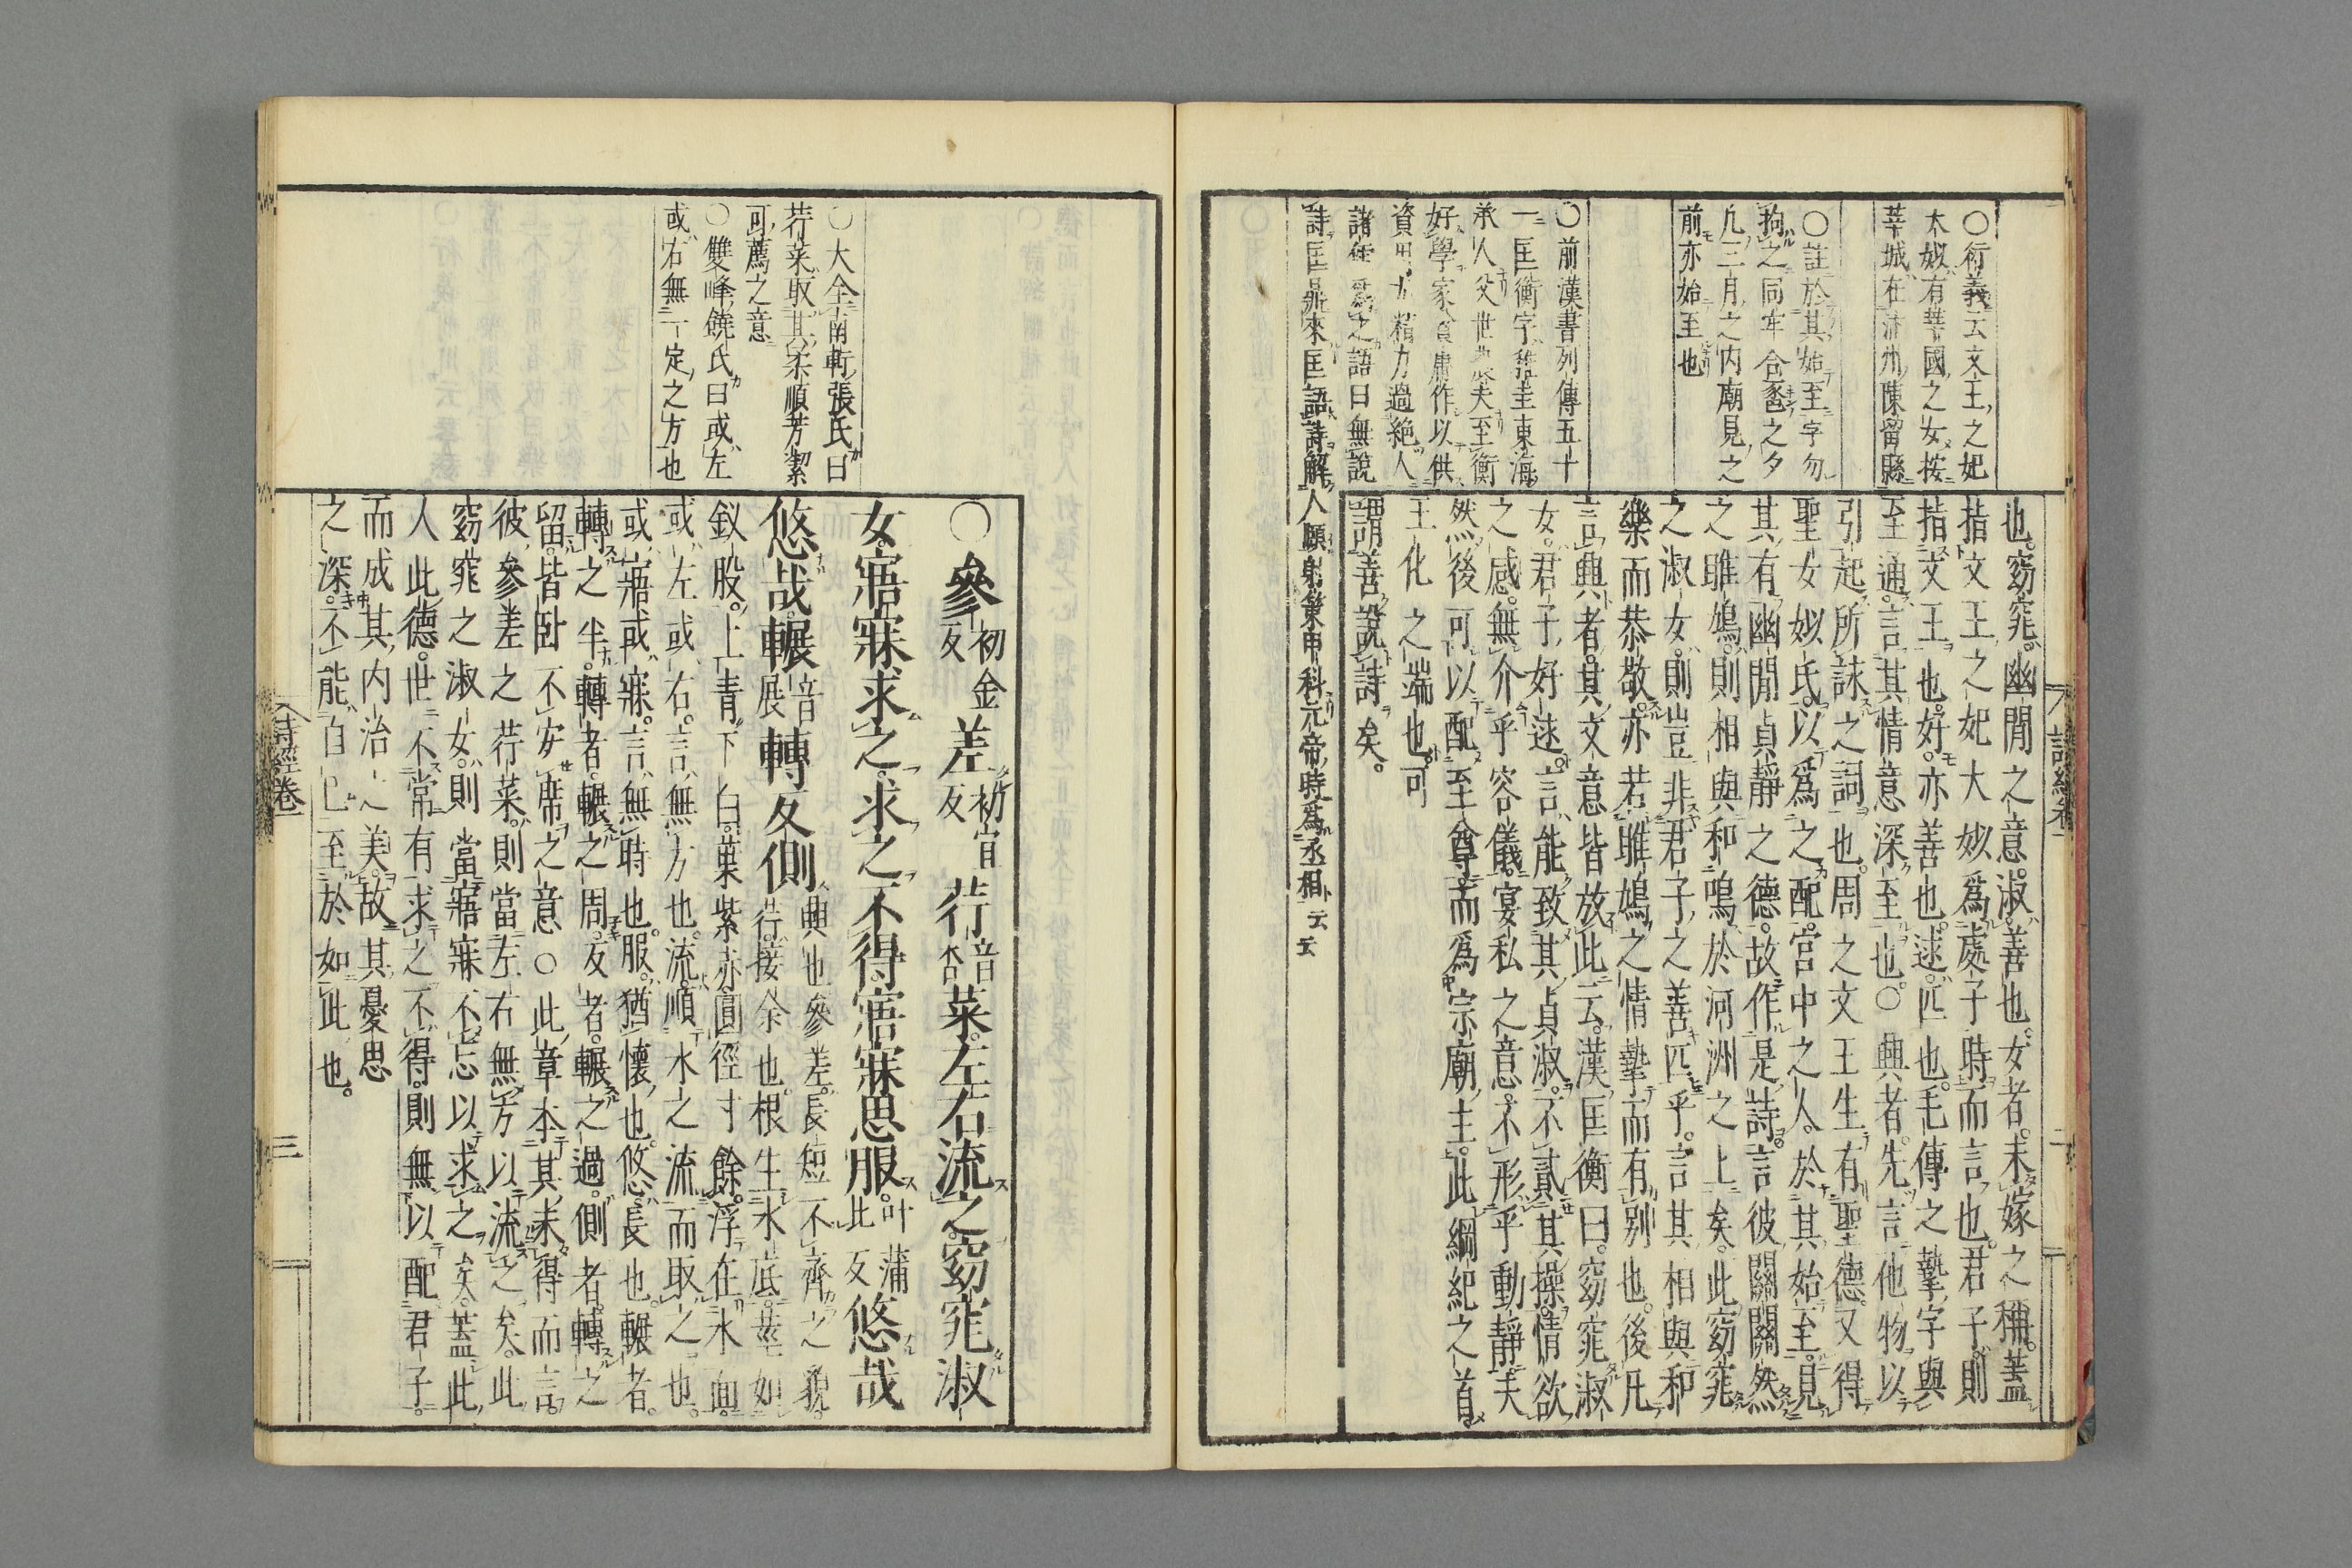 ○衍義云文王之妃
太姒有莘國之女按
莘城在汴州陳留縣
○註於其始至字勿
拘之同牢合巹之夕
凡三月之内廟見之
前亦始至也
○前漢書列傳五十
一匡衡字稚圭東海
承人父世農夫至衡
好學家貧庸作以供
資用尤精力過絶人
諸儒爲之語曰無說
詩匡鼎來匡語詩解人頤射策甲科元帝時爲丞相云云
也窈窕幽閒之意淑善也女者未嫁之稱蓋
指文王之妃大姒爲處子時而言也君子則
指文王也好亦善也逑匹也毛傳之摯字與
至通言其情意深至也○興者先言他物以
引起所詠之詞也周之文王生有聖德又得
聖女姒氏以爲之配宮中之人於其始至見
其有幽閒貞靜之德故作是詩言彼關關然
之雎鳩則相與和鳴於河洲之上矣此窈窕
之淑女則豈非君子之善匹乎言其相與和
樂而恭敬亦若雎鳩之情摯而有别也後凡
言興者其文意皆放此云漢匡衡曰窈窕淑
女君子好逑言能致其貞淑不貳其操情欲
之感無介乎容儀宴私之意不形乎動靜夫
然後可以配至尊而爲宗廟主此綱紀之首
王化之端也可
謂善說詩矣
詩經卷一
二
○大全南軒張氏曰
荇菜取其柔順芳潔
可薦之意
○雙峰饒氏曰或左
或右無一定之方也
○參初金反差初宜反荇音杏菜左右流之窈窕淑
女寤寐求之求之不得寤寐思服叶蒲此反悠哉
悠哉輾音展轉反側興也參差長短不齊之貌
荇接余也根生水底莖如
釵股上青下白葉紫赤圓徑寸餘浮在水面
或左或右言無方也流順水之流而取之也
或寤或寐言無時也服猶懷也悠長也輾者
轉之半轉者輾之周反者輾之過側者轉之
留皆臥不安席之意○此章本其未得而言
彼參差之荇菜則當左右無方以流之矣此
窈窕之淑女則當寤寐不忘以求之矣蓋此
人此德世不常有求之不得則無以配君子
而成其内治之美故其憂思
之深不能自已至於如此也
詩經卷一
三